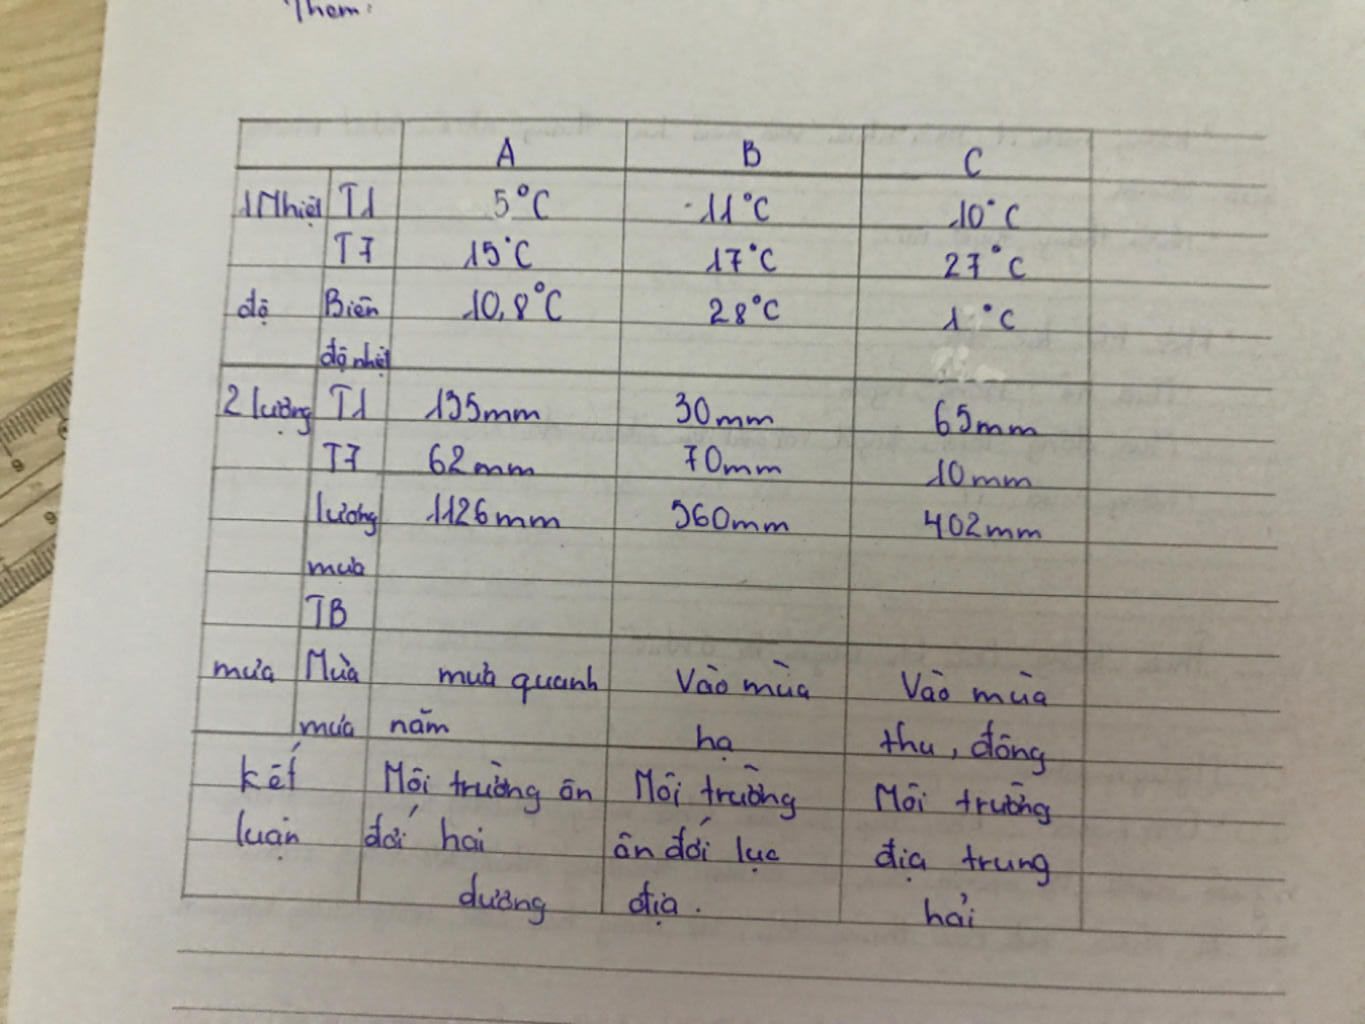 Them:
A B C
1 Nhiệt T1 5°C -11°C 10°C
T7 15°C 17°C 27°C
độ Biên 10,8°C 28°C 1 °C
độ nhiệt
2 lượng T1 135mm 30mm 65mm
T7 62mm 70mm 10mm
lương 1126mm 560mm 402mm
mưa
TB
mưa Mùa mưa quanh Vào mùa Vào mùa
mưa năm hạ thu, đông
kết Môi trường ôn Môi trường Môi trường
luận đới hải ôn đới lục địa trung
dương địa. hải